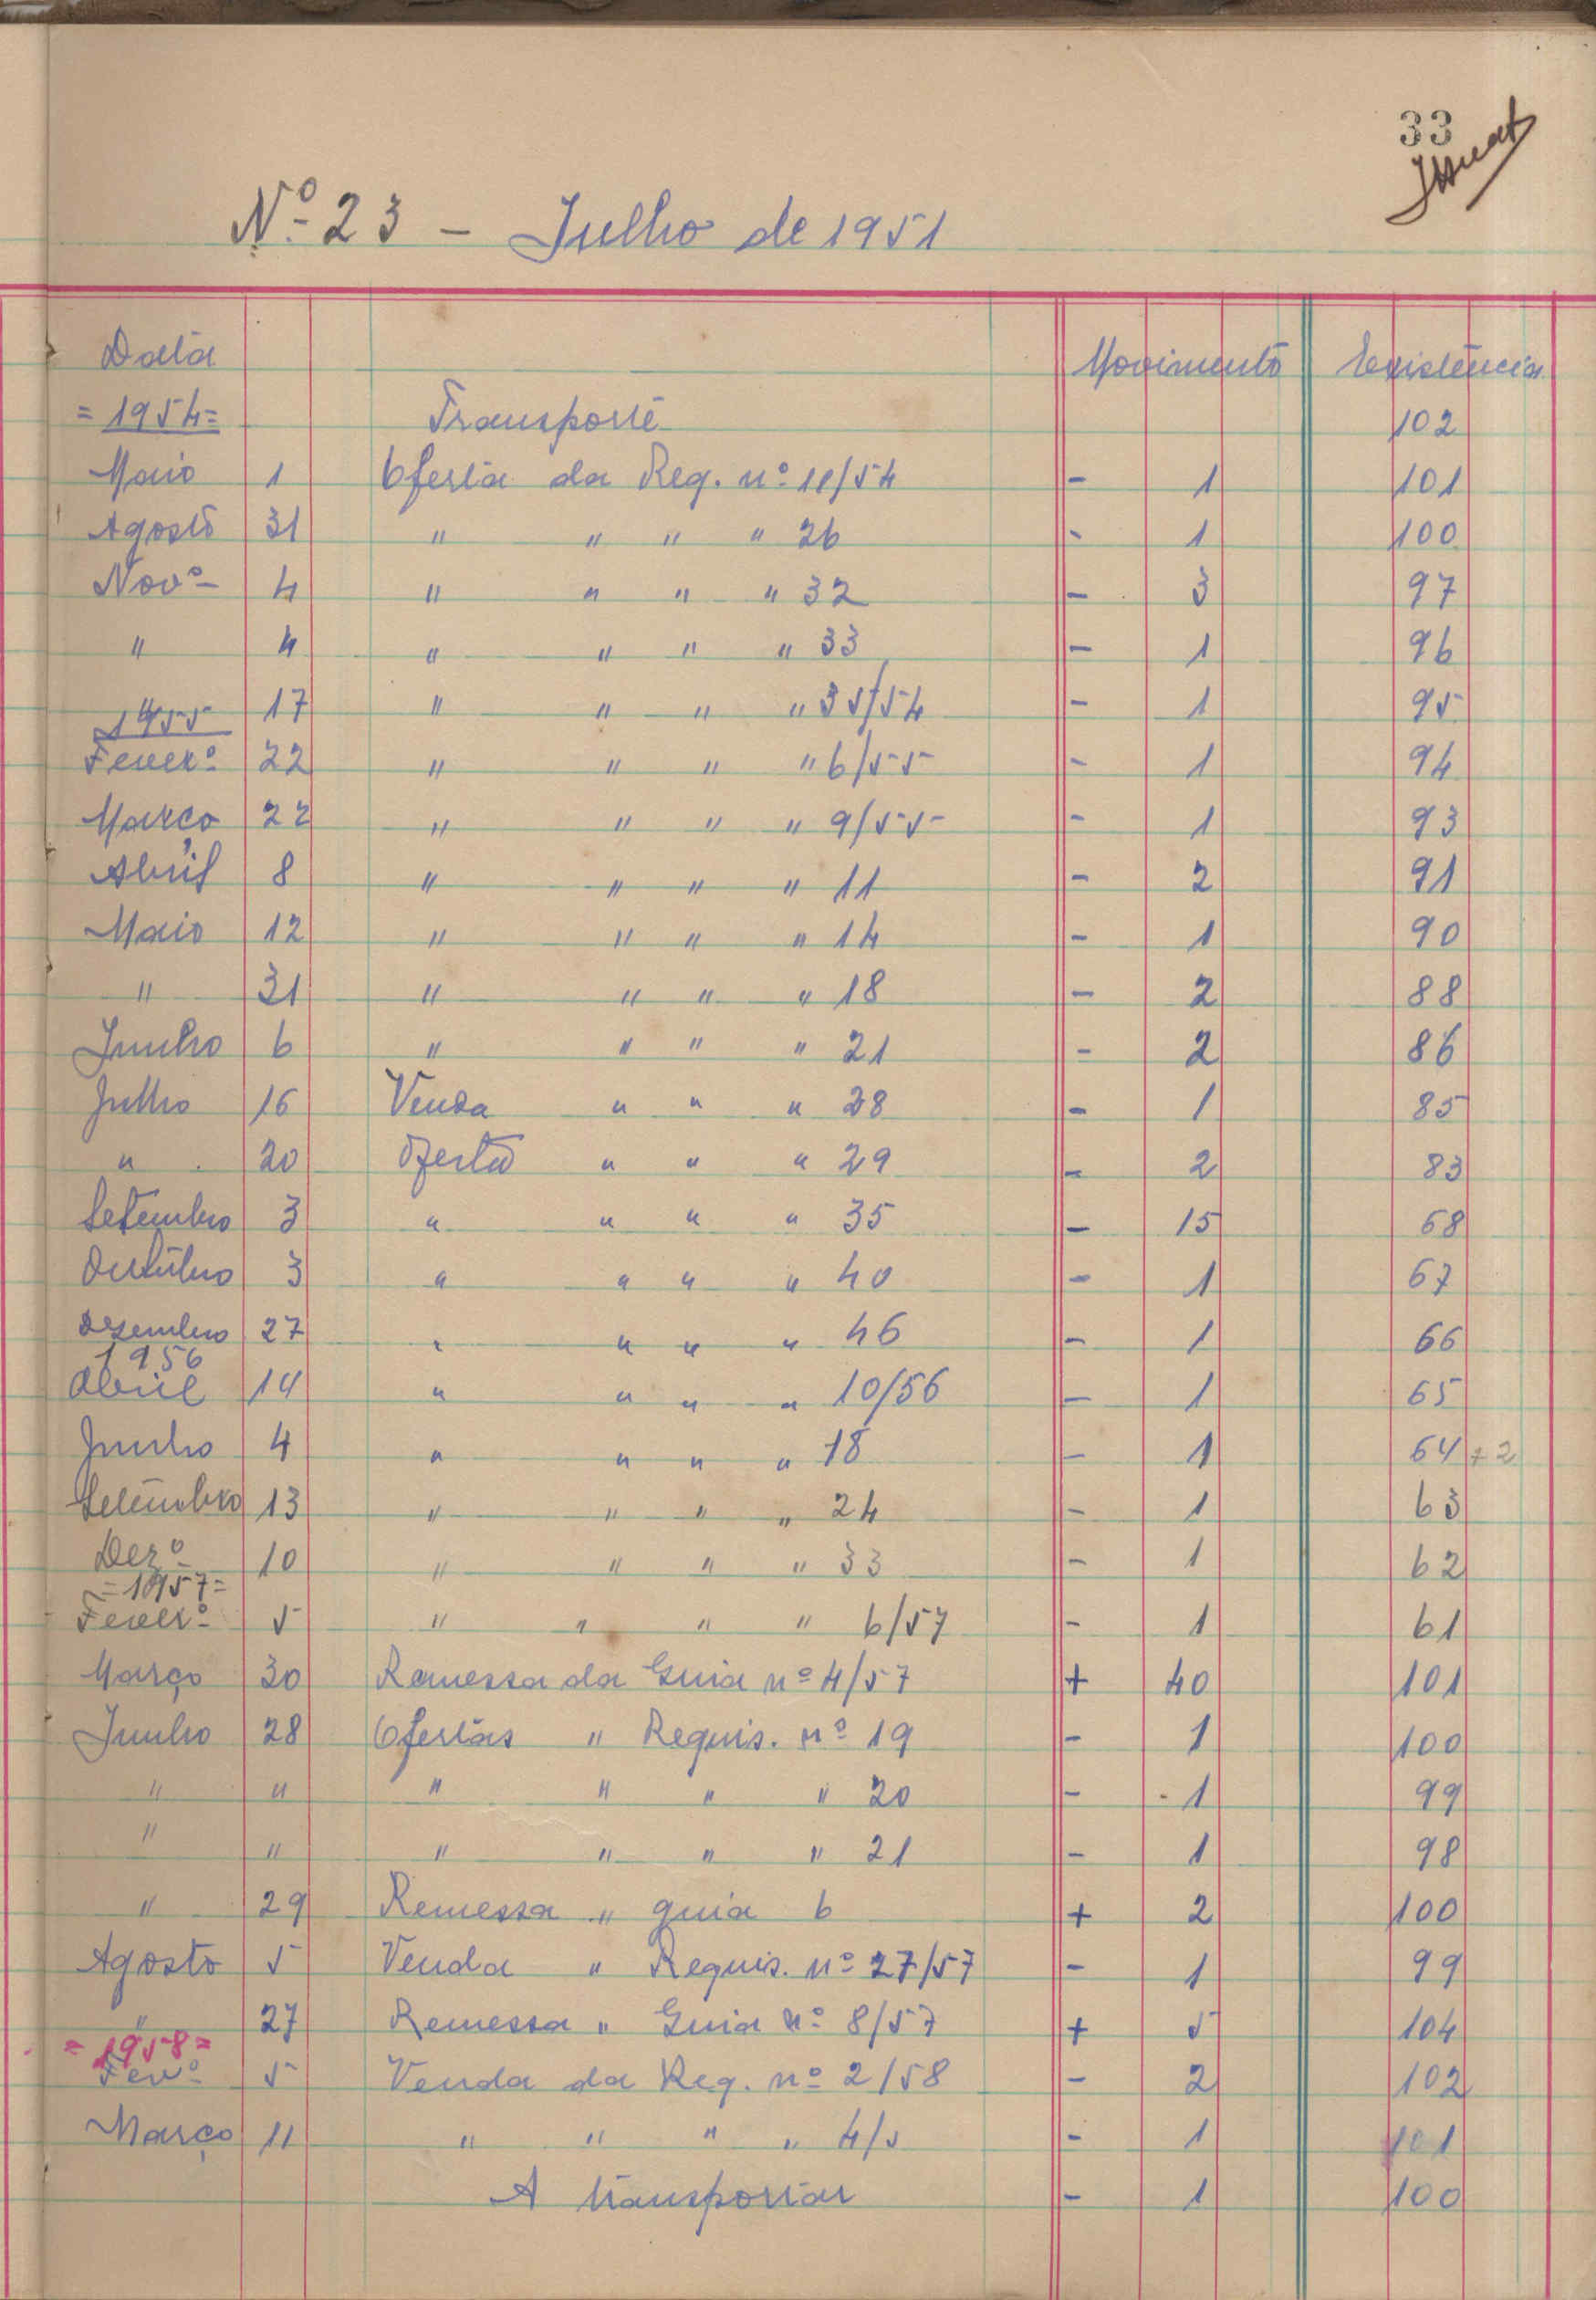 33
Nº 23 - Julho de 1951
Data Movimento Existência
= 1954 = Transporte 102
Maio 1 Oferta da Req. nº 11/54 - 1 101
Agosto 31 " " " " 26 - 1 100
Novº 4 " " " " 32 - 3 97
" 4 " " " " 33 - 1 96
" 17 " " " " 35/54 - 1 95
1955
Feverº 22 " " " " 6/55 - 1 94
Março 22 " " " " 9/55 - 1 93
Abril 8 " " " " 11 - 2 91
Maio 12 " " " " 14 - 1 90
" 31 " " " " 18 - 2 88
Junho 6 " " " " 21 - 2 86
Julho 16 Venda " " " 28 - 1 85
" 20 Oferta " " " 29 - 2 83
Setembro 3 " " " " 35 - 15 68
Outubro 3 " " " " 40 - 1 67
Dezembro 27 " " " " 46 - 1 66
1956
Abril 14 " " " " 10/56 - 1 65
Junho 4 " " " " 18 - 1 64 + 2
Setembro 13 " " " " 24 - 1 63
Dezº 10 " " " " 33 - 1 62
= 1957 =
Feverº 5 " " " " 6/57 - 1 61
Março 30 Remessa da Guia nº 4/57 + 40 101
Junho 28 Ofertas " Requis. nº 19 - 1 100
" " " " " " 20 - 1 99
" " " " " " 21 - 1 98
" 29 Remessa " guia 6 + 2 100
Agosto 5 Venda " Requis. nº 27/57 - 1 99
" 27 Remessa " Guia nº 8/57 + 5 104
= 1958 =
Fevº 5 Venda da Req. nº 2/58 - 2 102
Março 11 " " " " 4/5 - 1 101
A transportar - 1 100